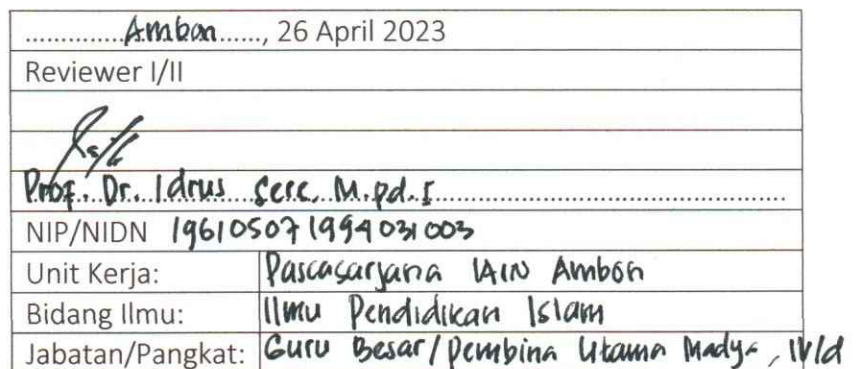 ..............Ambon......, 26 April 2023
Reviewer I/II
Prof. Dr. Idrus Sere, M.pd.I
NIP/NIDN 196105071994031003
Unit Kerja: Pascasarjana IAIN Ambon
Bidang Ilmu: Ilmu Pendidikan Islam
Jabatan/Pangkat: Guru Besar/Pembina Utama Madya, IV/d